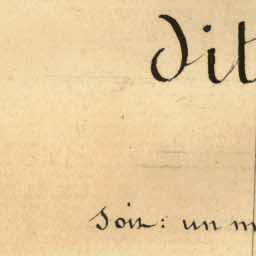 dit
Soit: un m